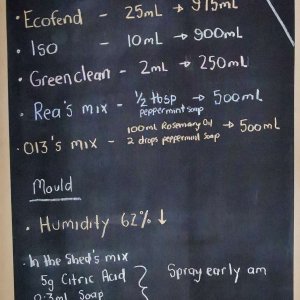 • Ecofend - 25mL → 975mL
• Iso - 10mL → 900mL
• Greenclean - 2mL → 250mL
• Rea's mix - ½ tbsp → 500mL
peppermint soap
• O13's mix - 100mL Rosemary Oil → 500mL
2 drops peppermint soap
Mould
• Humidity 62% ↓
• In the Shed's mix
5g Citric Acid } Spray early am
0.3mL Soap